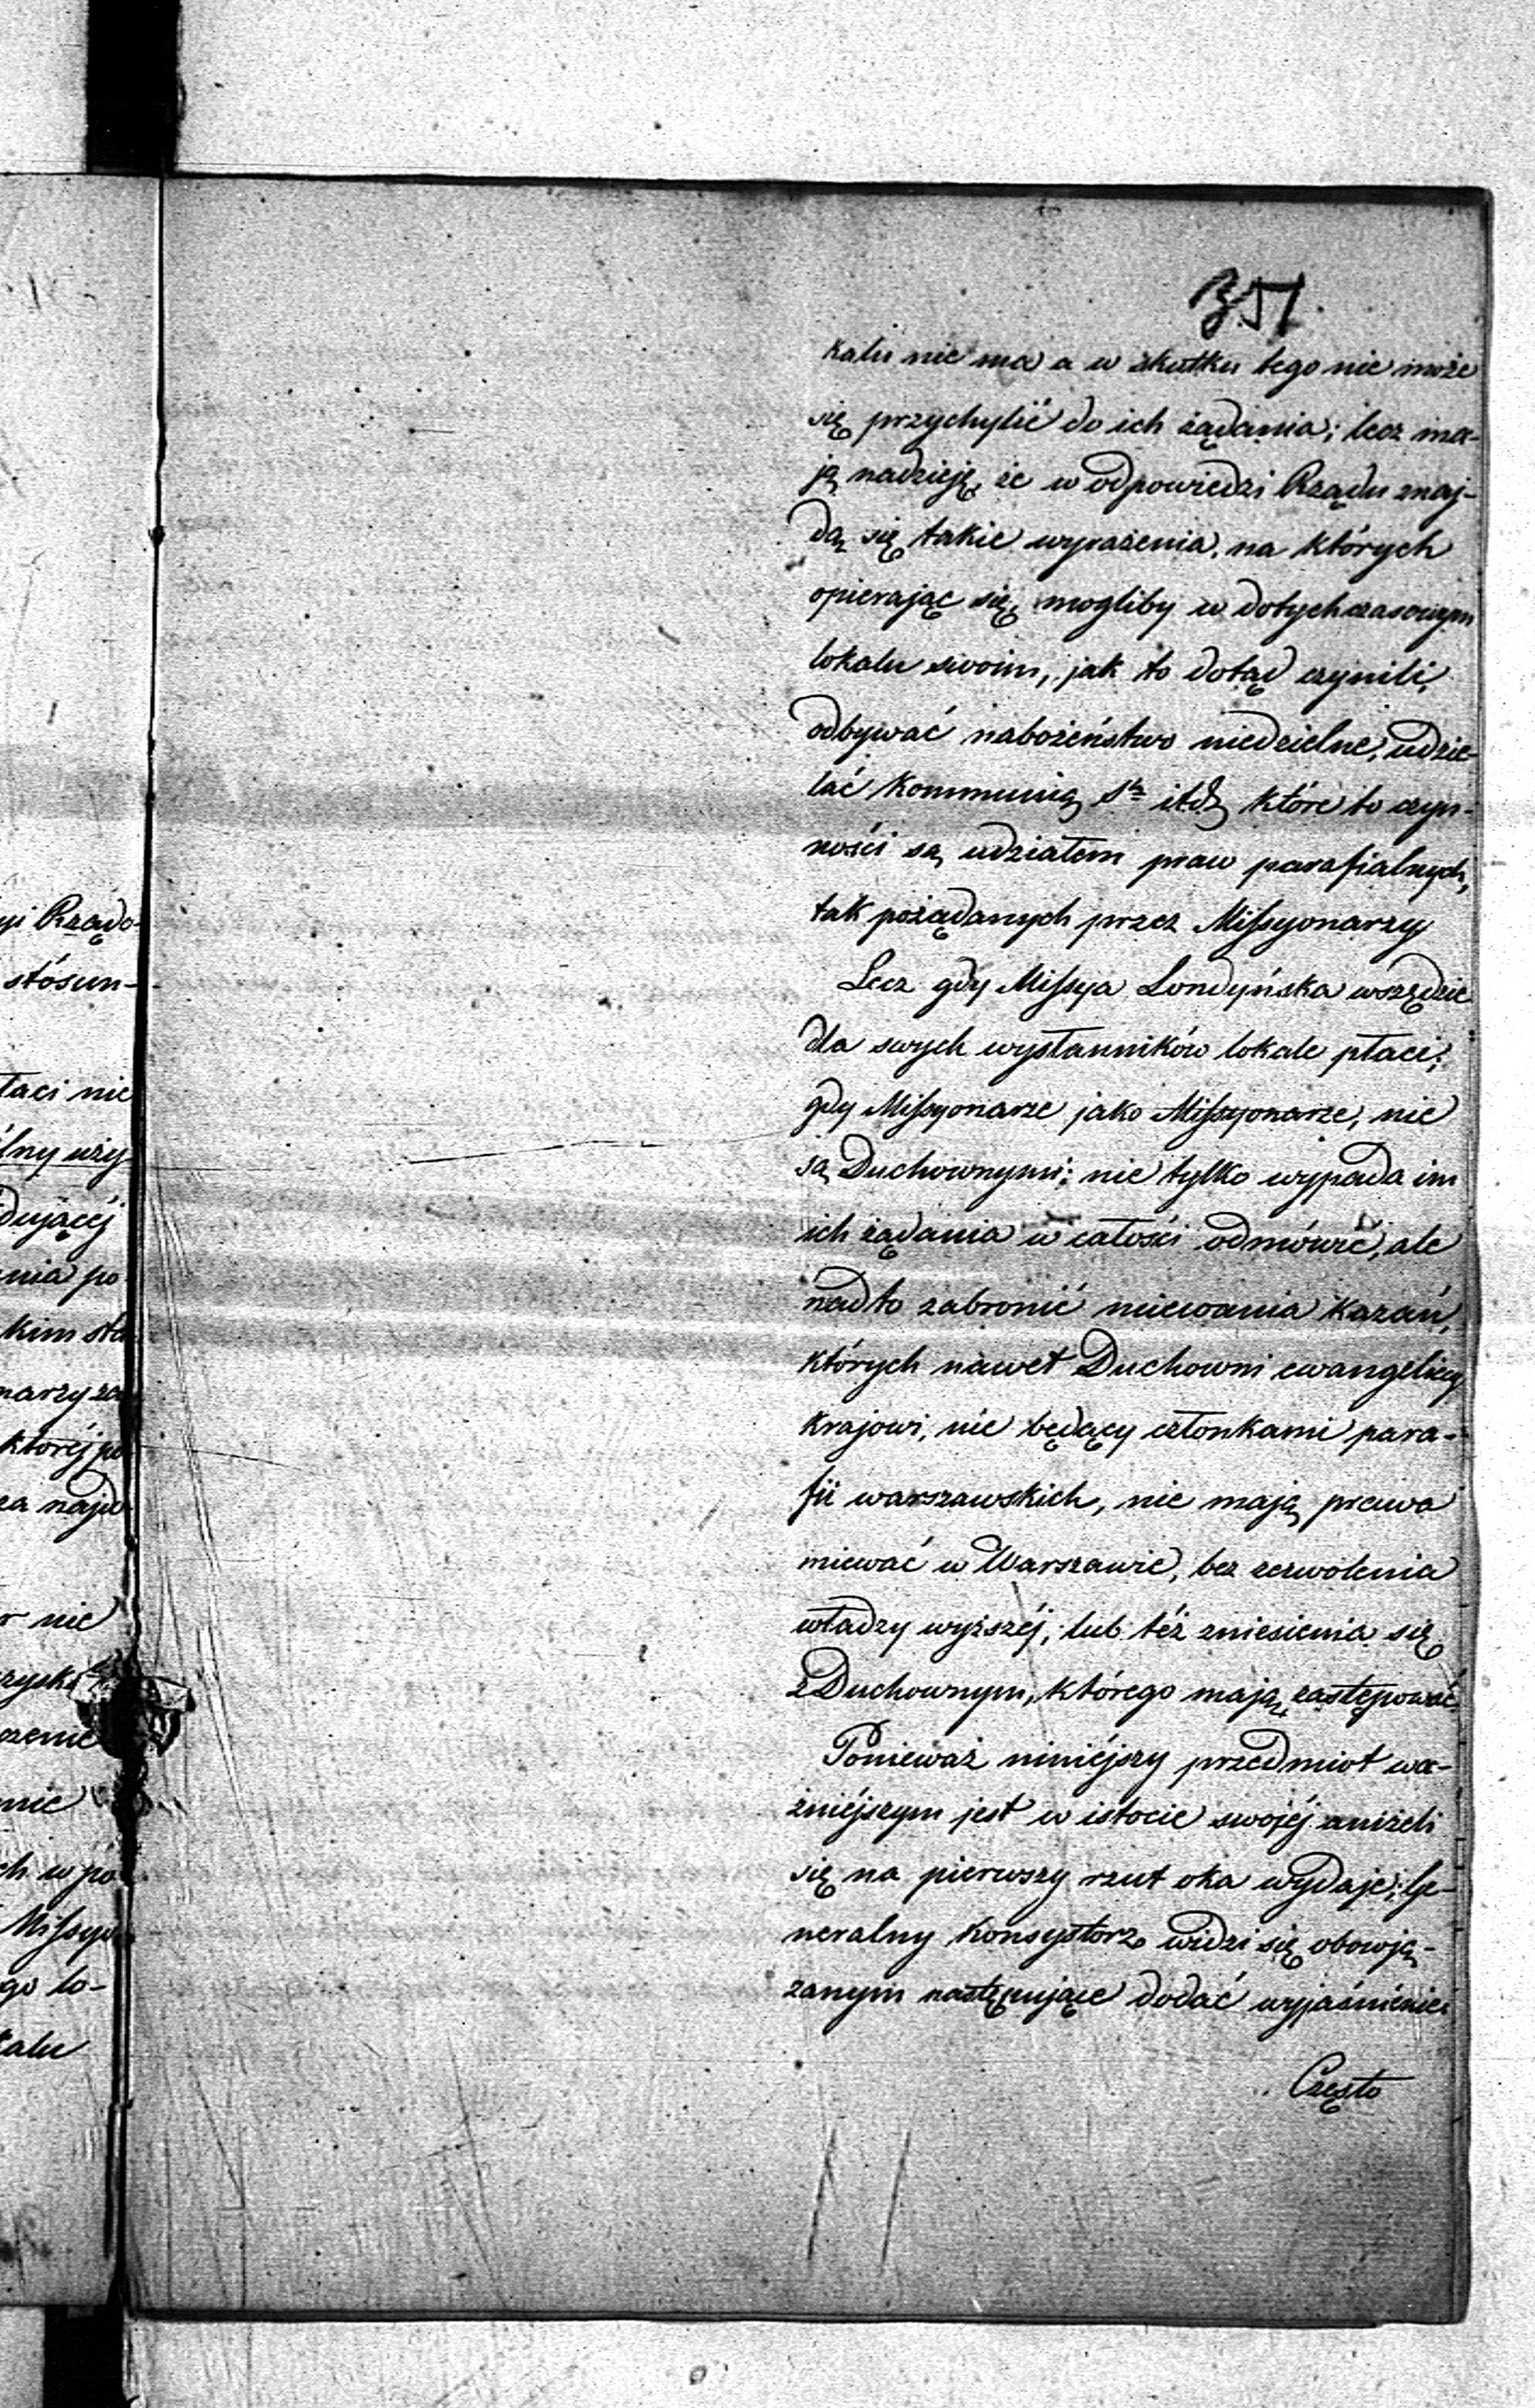 351.
kalu nie ma a w skutku tego nie może
się przychylić do ich żądania; lecz ma-
ją nadzieję, że w odpowiedzi Rządu znaj-
dą się takie wyrażenia, na których
opierając się, mogliby w dotychczasowym
lokalu swoim, jak to dotąd czynili,
odbywać nabożeństwo niedzielne, udzie-
lać Kommunią Stą itd, które to czyn-
ności są udziałem praw parafialnych,
tak pożądanych przez Missyonarzy
Lecz gdy Missya Londyńska wszędzie
dla swych wysłanników lokale płaci;
gdy Missyonarze jako Missyonarze, nie
są Duchownymi; nie tylko wypada im
ich żądania w całości odmówić, ale
nadto zabronić miewania kazań,
których nawet Duchowni ewangeliccy
krajowi, nie będący członkami para-
fii warszawskich, nie mają prawa
miewać w Warszawie, bez zezwolenia
władzy wyższéj, lub téż zniesienia się
z Duchownym, którego mają zastępować.
Ponieważ niniéjszy przedmiot wa-
żniéjszym jest w istocie swojéj aniżeli
się na pierwszy rzut oka wydaje; Je-
neralny Konsystorz widzi się obowią-
zanym następujące dodać wyjaśnienie
Często
yi Rządo-
stósun-
łaci nie
lny uży
dującéj
nia po
kim sta
narzy za
któréj po
za najd
r nie
zysk
zenie
nie
ch w po
Missyo
go lo-
kalu